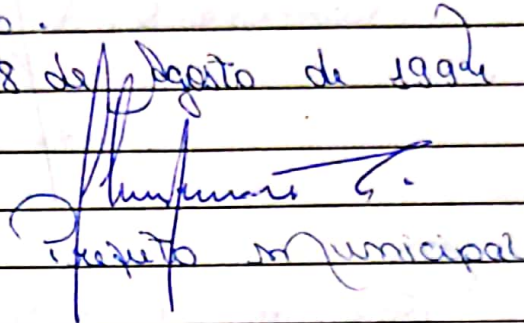 8 de Agosto de 1994
Prefeito Municipal